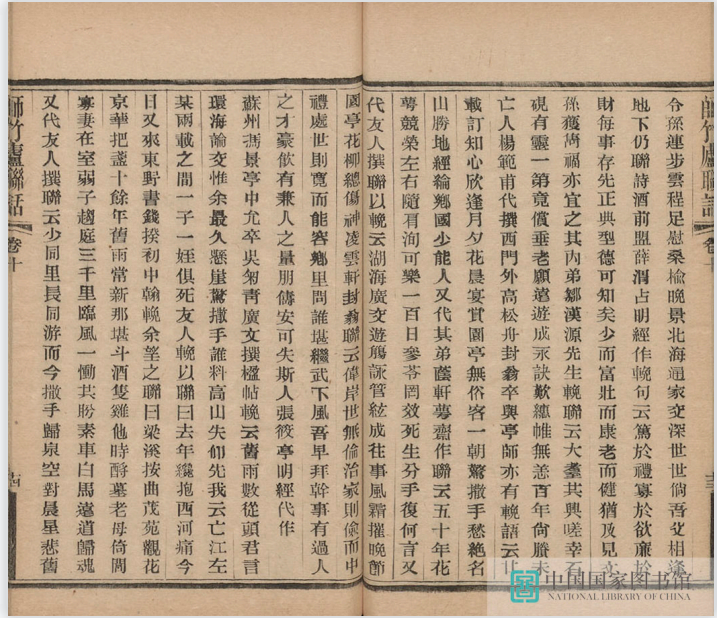 師竹廬聯話 卷十 十三
令孫連步雲程足慰桑榆晚景北海通家交深世世倘吾父相逢
地下仍聯詩酒前盟薛渭占明經作輓句云篤於禮寡於欲廉於
財每事存先正典型德可知矣少而富壯而康老而健猶及見文
孫獲雋福亦宜之其內弟鄒漢源先生輓聯云大耋其興嗟幸石
硯有靈一第竟償垂老願遠遊成永訣歎繐帷無恙百年尚賸未
亡人楊範甫代撰西門外高松舟封翁卒與亭師亦有輓語云廿
載訂知心欣逢月夕花晨宴賞園亭無俗客一朝驚撒手愁絕名
山勝地經綸鄉國少能人又代其弟蔭軒夢齋作聯云五十年花
萼競榮左右隨肩洵可樂一百日參苓罔效死生分手復何言又
代友人撰聯以輓云湖海廣交遊觴詠管絃成往事風霜摧晚節
園亭花柳總傷神凌雲軒封翁聯云偉岸世無倫治家則儉而中
禮處世則寬而能容鄉里問誰堪繼武下風吾早拜幹事有過人
之才豪飲有兼人之量朋儔安可失斯人張筱亭明經代作
蘇州馮景亭中允卒吳菊青廣文撰楹帖輓云舊雨數從頭君言
環海論交惟余最久懸崖驚撒手誰料高山失仰先我云亡江左
某兩載之間一子一姪俱死友人輓以聯曰去年纔抱西河痛今
日又來東野書錢揆初中翰輓余蓥之聯曰梁溪按曲茂苑觀花
京華把盞十餘年舊雨當新那堪斗酒隻雞他時酹墓老母倚閭
寡妻在室弱子趨庭三千里臨風一慟共盼素車白馬遠道歸魂
又代友人撰聯云少同里長同游而今撒手歸泉空對晨星悲舊
師竹廬聯話 卷十 十四
中国国家图书馆
NATIONAL LIBRARY OF CHINA